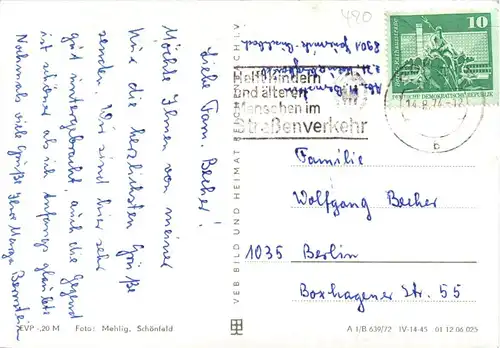 490
Liebe Fam. Becher!
Möchte Ihnen von meiner
Kur die herzlichsten Grüße
senden. Wir sind hier sehr
gut untergebracht, auch die Gegend
ist schöner als ich anfangs glaubte
Nochmals viele Grüße Ihre Marga Bernstein
EVP -,20 M Foto: Mehlig, Schönfeld
VEB BILD UND HEIMAT REICHENBACH I. V.
Helft Kindern
und älteren
Menschen im
Straßenverkehr
10
DEUTSCHE DEMOKRATISCHE REPUBLIK
b
Familie
Wolfgang Becher
1035 Berlin
Boxhagener Str. 55
A 1/B 639/72 IV-14-45 01 12 06 025